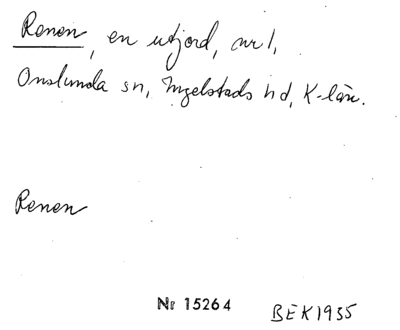 Renen, en utjord, nr 1,
Onslunda sn, Ingelstads hd, K-län.
Renen
Nr 15264
BEK1935